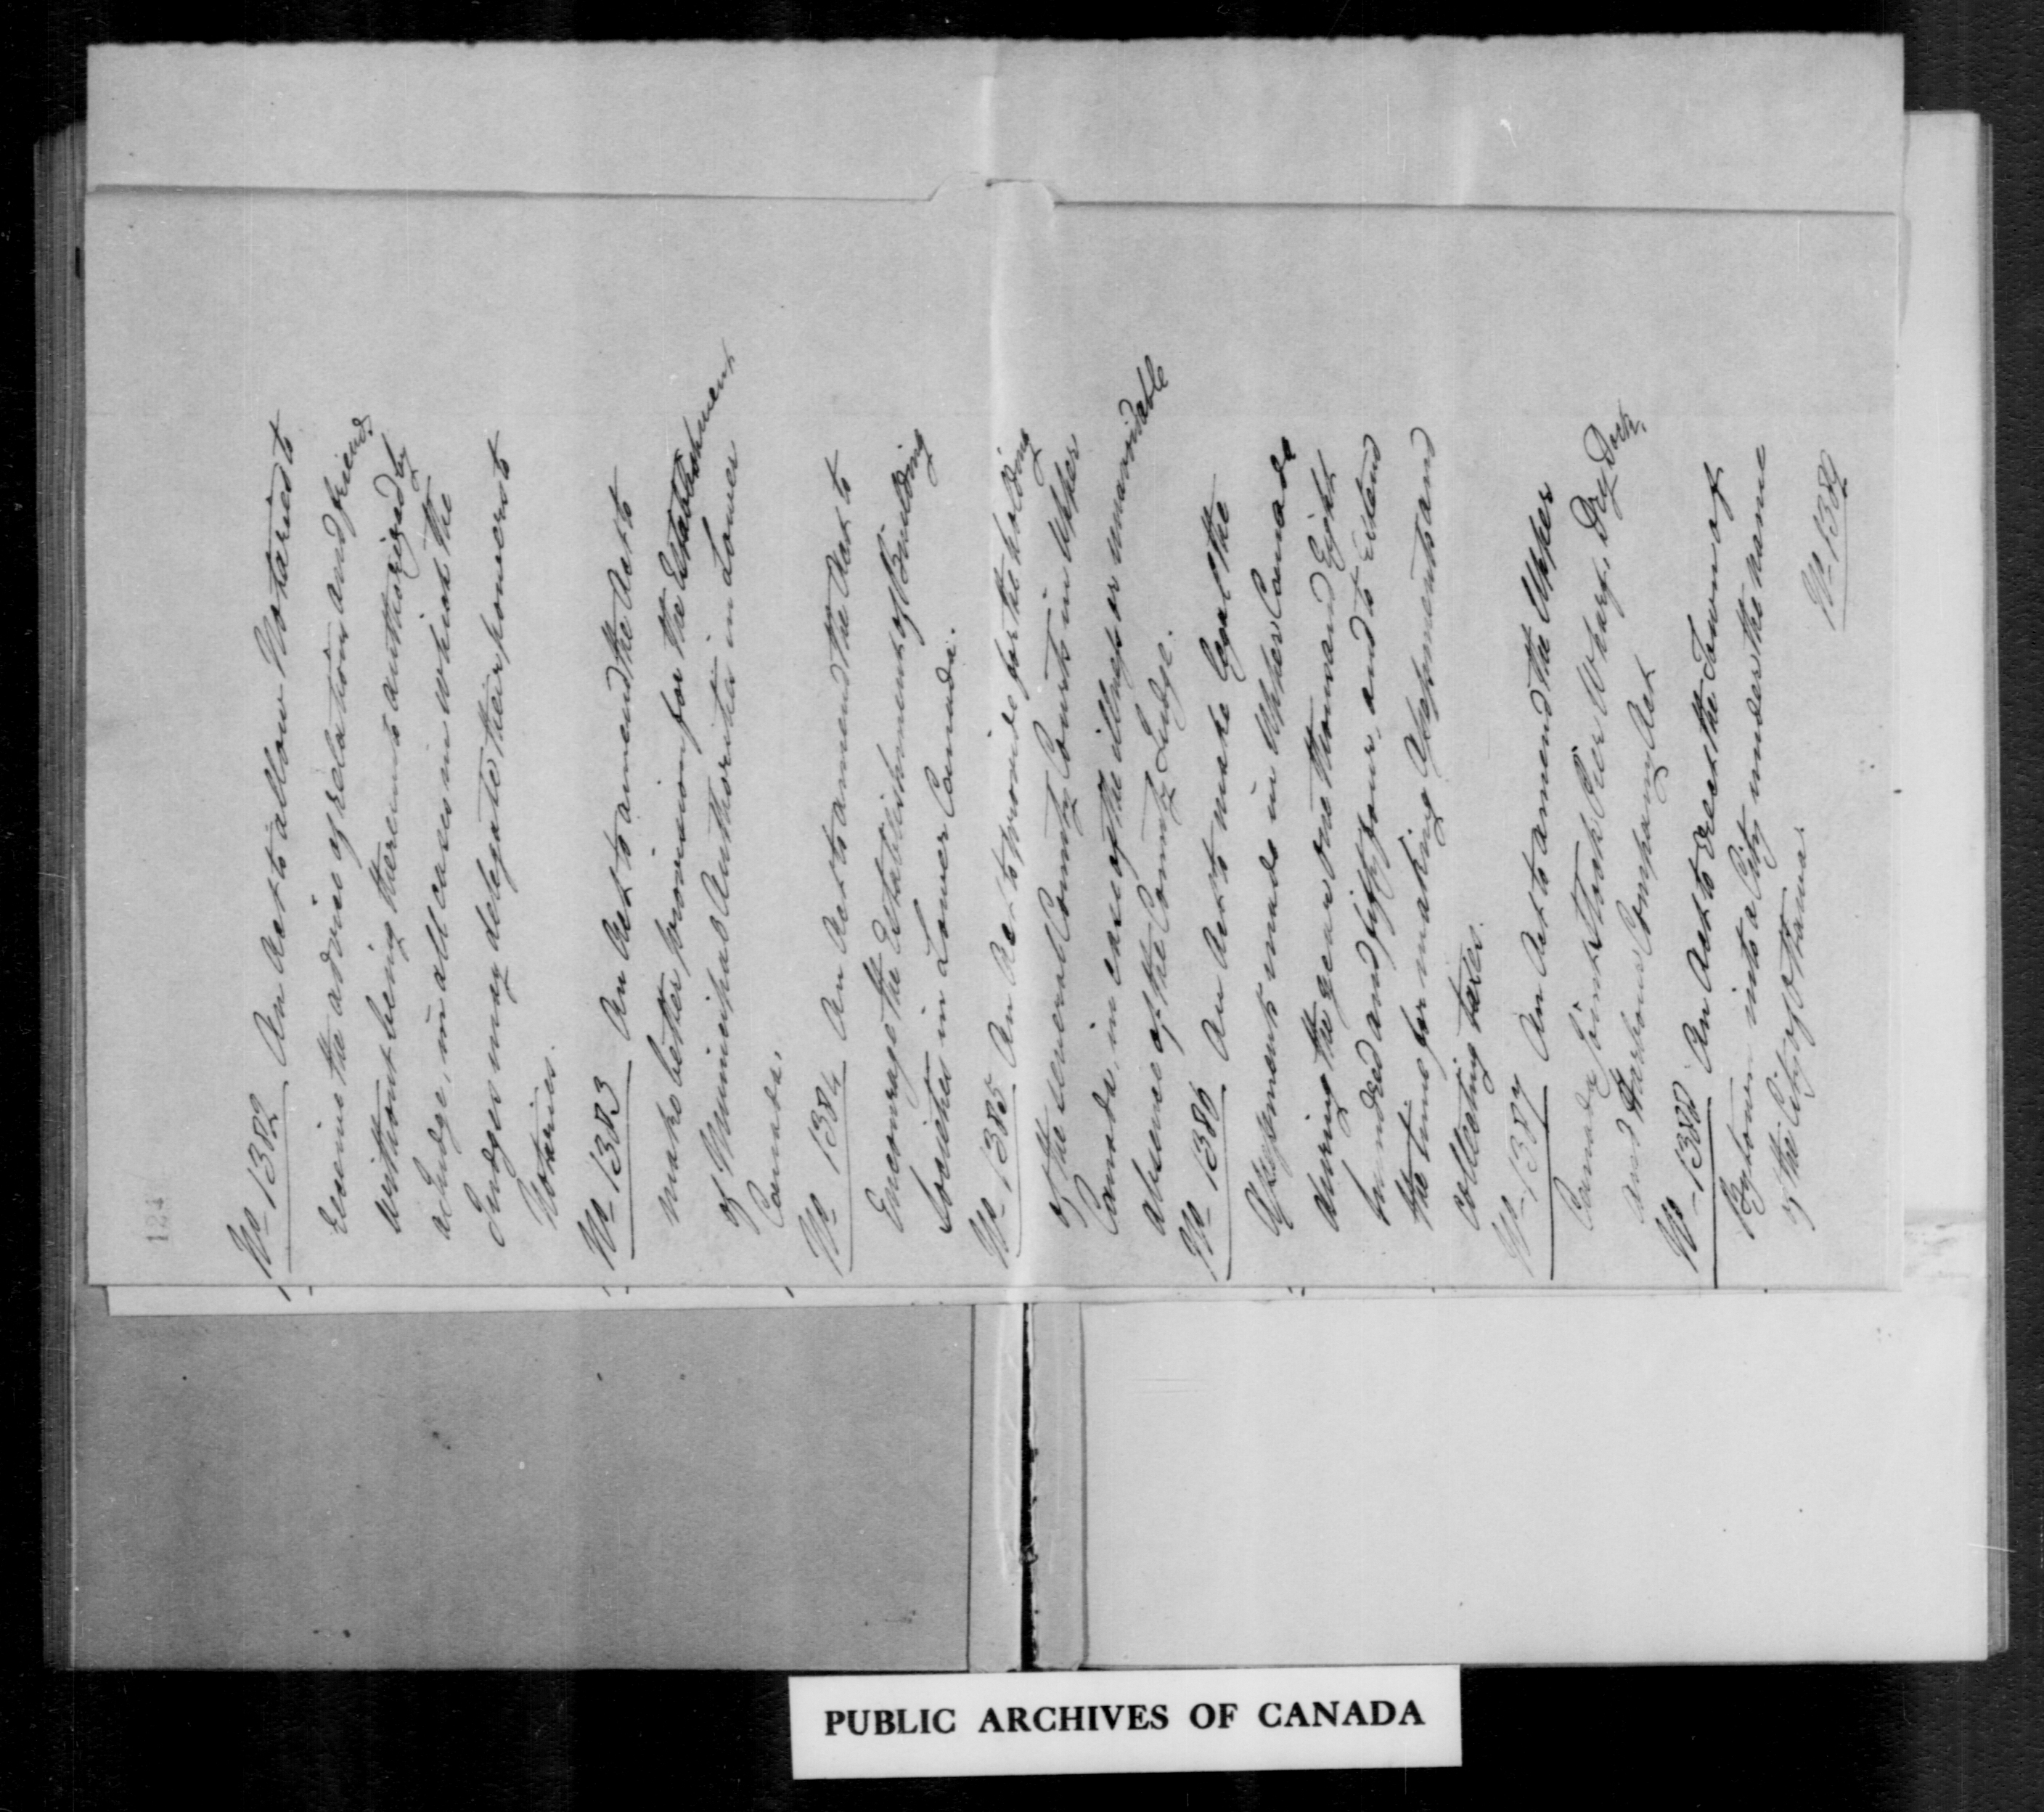 124
No 1382 An Act to allow Notaries to
Receive the advice of relations and friends
without being thereunto authorized by
a Judge, in all cases in which the
Judges may delegate their powers to
Notaries.
No 1383 An Act to amend the Act to
make better provision for the Establishment
of Municipal Authorities in Lower
Canada.
No 1384 An Act to amend the Act to
Encourage the Establishment of Building
Societies in Lower Canada.
No 1385 An Act to provide for the holding
of the several County Courts in Upper
Canada, in case of the illness or unavoidable
absence of the County Judge.
No 1386 An Act to make legal the
Assessments made in Upper Canada
during the year one thousand Eight
hundred and fifty four, and to Extend
the time for making Assessments and
collecting taxes.
No 1387 An Act to amend the Upper
Canada Joint Stock Pier Wharf, Dry Dock,
and Harbour Company Act
No 1388 An Act to erect the Town of
Bytown into a City under the name
of the City of Ottawa.
No 1389
PUBLIC ARCHIVES OF CANADA